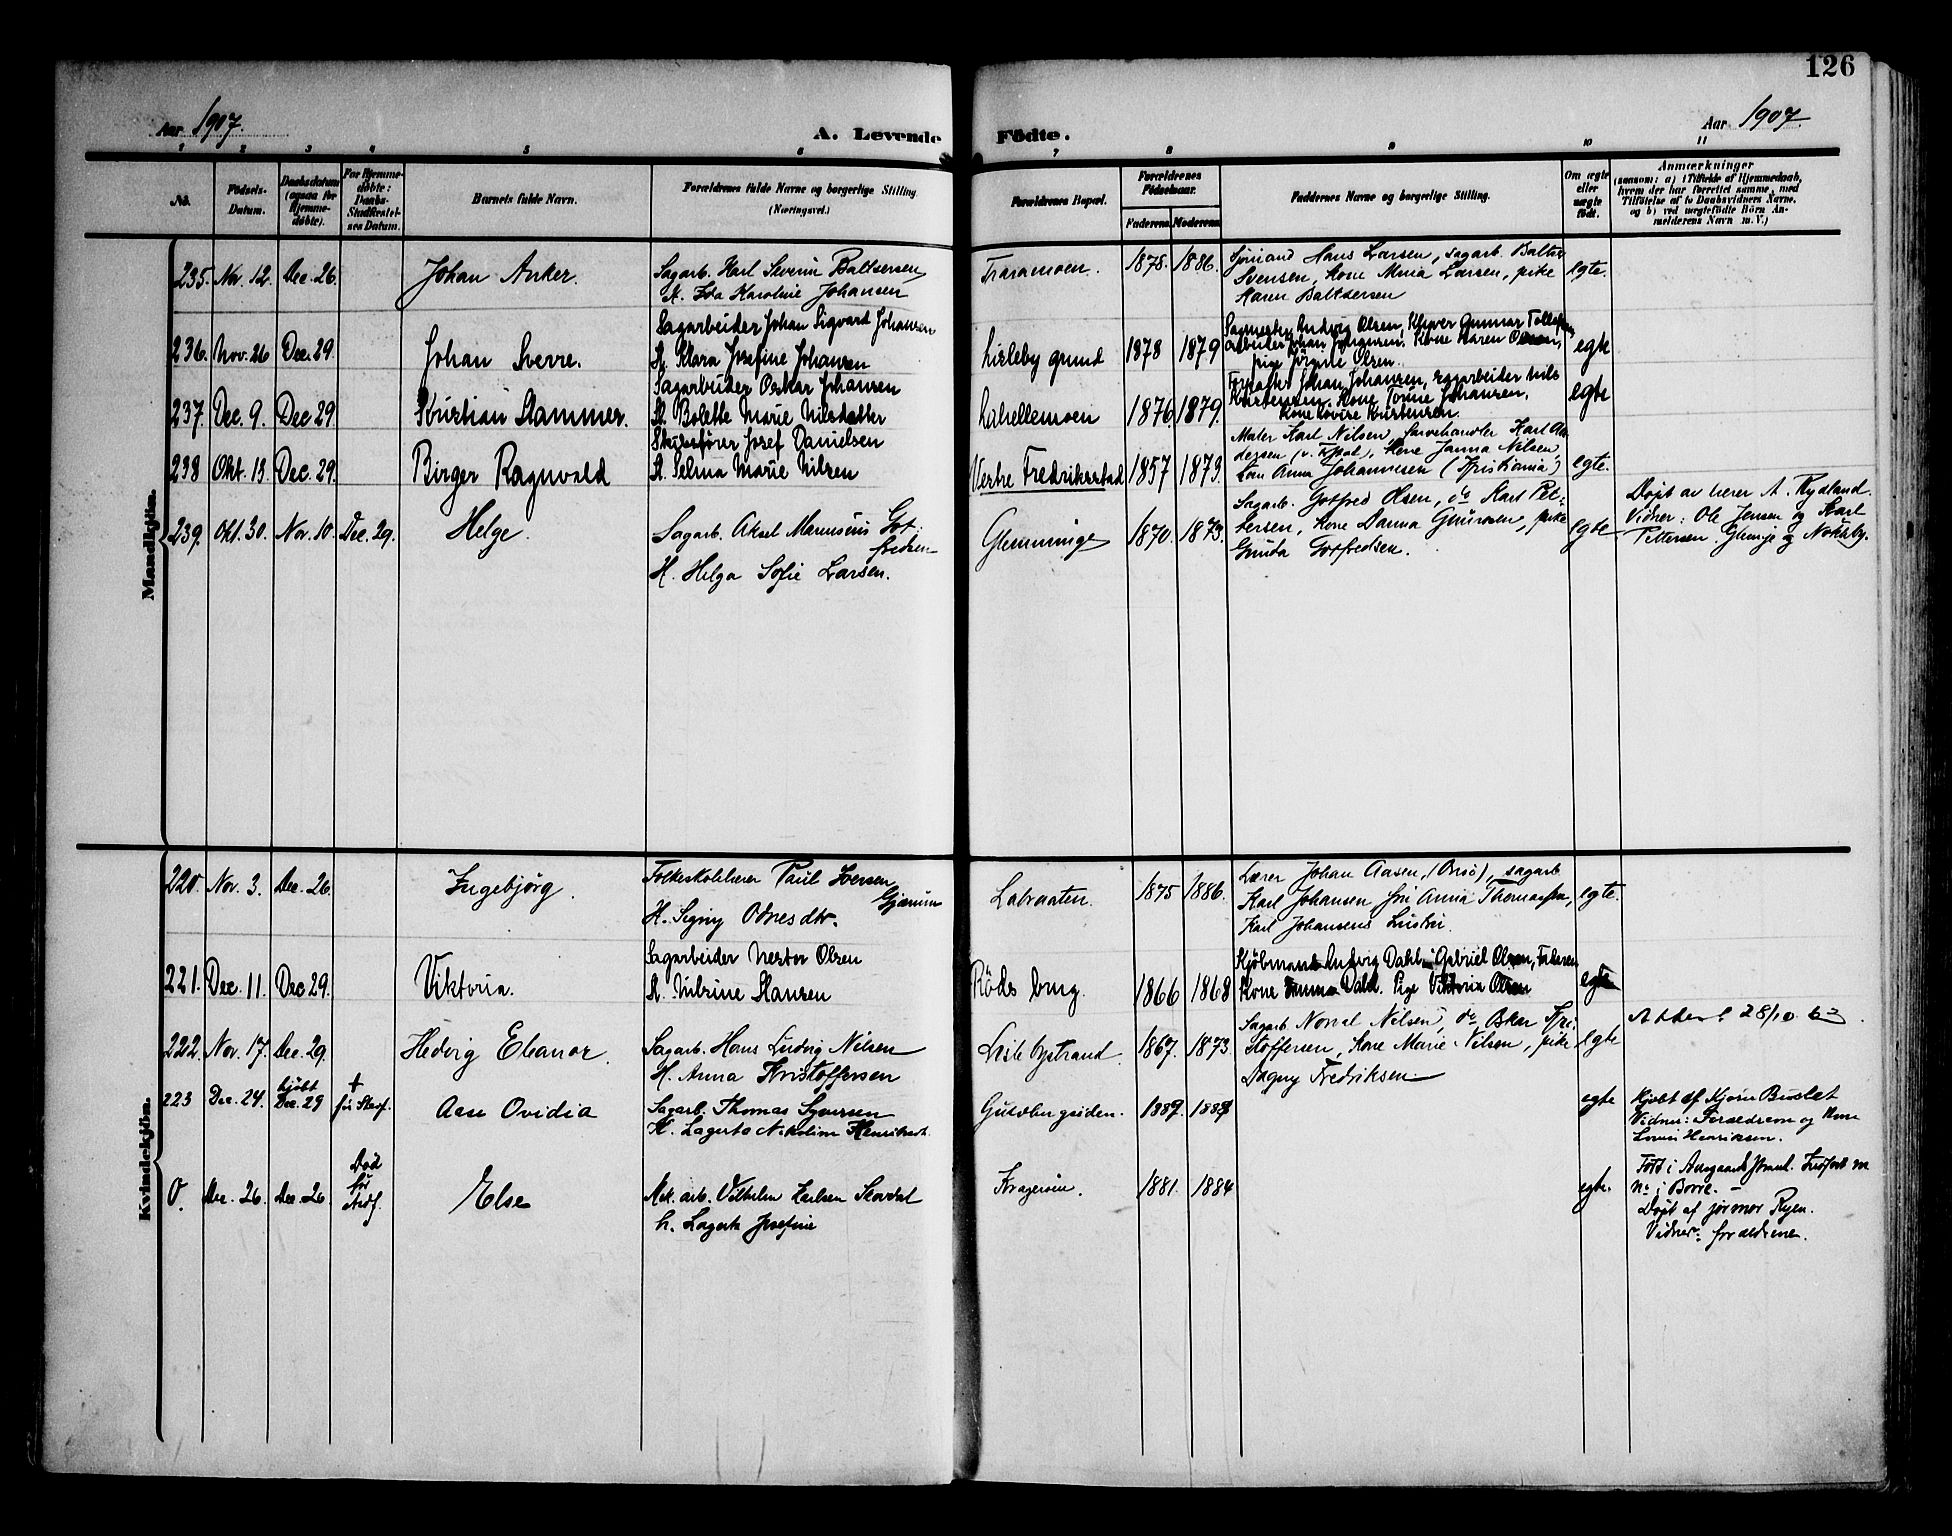 126
Aar 1907.
A. Levende Födte.
Aar 1907.
1 2 3 4 5 6 7 8 9 10 11
No.
Födsels-
Datum.
Daabsdatum
(ogsaa for
Hjemme-
døbte).
For Hjemme-
døbte:
Daabs-
Stadfæstel-
ses Datum.
Barnets fulde Navn.
Forældrenes fulde Navne og borgerlige Stilling.
(Næringsvei.)
Forældrenes Bopæl.
Forældrenes
Födselsaar.
Faderens Moderens
Faddernes Navne og borgerlige Stilling.
Om ægte
eller
uægte
födt.
Anmærkninger
(saasom: a) i Tilfælde af Hjemmedaab,
hvem der har forrettet samme, med
Tilföielse af to Daabsvidners Navne,
og b) ved uægtefödte Börn An-
melderens Navn m. V.)
Mandkjön.
235. Nov. 12. Dec. 26. Johan Anker.
Sagarb. Karl Severin Baltsersen
H. Ida Karoline Johansen
Traramoen. 1878. 1886.
Sjömand Hans Larsen, sagarb. Baltser
Svensen, kone Maria Larsen, pike
Maren Baltsersen
egte.
236. Nov. 26 Dec. 29. Johan Sverre.
Sagarbeider Johan Sigvard Johansen
H. Klara Josefine Johansen
Lisleby grund 1878 1879
Ludvig Olsen, Gunnar
arbeider Johan Johansen. Kone Karen Olsen,
pige Jörgine Olsen.
egte
237. Dec. 9. Dec 29. Kristian Hammer.
Sagarbeider Oskar Johansen
H. Bolette Marie Nilsdatter
Lahellemoen 1876 1879.
Johan Johansen, sagarbeider Nils
Kristensen. Kone Tomine Johansen,
Kone Lovise Kristensen.
egte
238 Okt. 13. Dec. 29. Birger Ragnvald
Josef Danielsen
H. Selma Marie Nilsen
Vestre Fredriksstad 1857 1873.
Maler Karl Nilsen, farvehandler Karl An-
dersen kone Janna Nilsen,
Anna Johannesen (Kristiania)
egte.
239. Okt. 30. Nov. 10. Dec. 29. Helge.
Sagarb. Aksel Marensius Got-
fredsen
H. Helga Sofie Larsen.
Glemminge 1870. 1873.
Sagarb. Gotfred Olsen, do Karl Pet-
tersen, kone Danna pike
Gunda Gotfredsen.
egte
Döpt av lærer A. Rydland.
Vidner: Ole Jensen og Karl
Pettersen. Glemge og Nokleby.
Kvindekjön.
220. Nov. 3. Dec. 26 Ingebjörg.
Folkeskolelærer Paul Iversen
Gjærum
H. Signy Odnes dtr.
Labraaten. 1875 1886.
Lærer Johan Aasen, (Onsö), sagarb.
Karl Johansen, frk Anna
Karl Johansens hustru.
egte.
221. Dec. 11. Dec 29. Viktoria.
Sagarbeider Nestor Olsen
H. Milrine Hansen
Rödes brug. 1866 1868
Kjöbmand Ludvig Dahl, Gabriel Olsen,
Kone Emma Dahl. Pige Viktoria Olsen
egte
222. Nov. 17. Dec. 29. Hedvig Eleanor.
Sagarb. Hans Ludvig Nilsen
H. Anna Kristoffersen
Lislebystrand. 1867. 1873.
Sagarb. Norval Nilsen, do Oskar Kri-
stoffersen, kone Marie Nilsen, pike
Dagny Fredriksen.
egte
Attest 28/10
223 Dec. 24. hjöbt
Dec. 29 †
för Stadf. Aase Ovidia
Sagarb. Thomas Syversen
H. Lagerta Nikoline
Gulvbergsiden. 1889. 1889
egte
Hjöbt af Kjerne Buslet
Vidner: Forældrene og Kone
Lovise Henriksen.
0. Dec. 26. Dec. 26 Död
för
Stadf. Else
Mek. arb. Vilhelm Karlsen
h. Lagerta Josefine
Krageröen. 1881. 1884
egte.
Födt i Aasgaards Strand. Indfört m
No i Borre.
Döpt af jormor Ryen.
Vidner: forældrene.